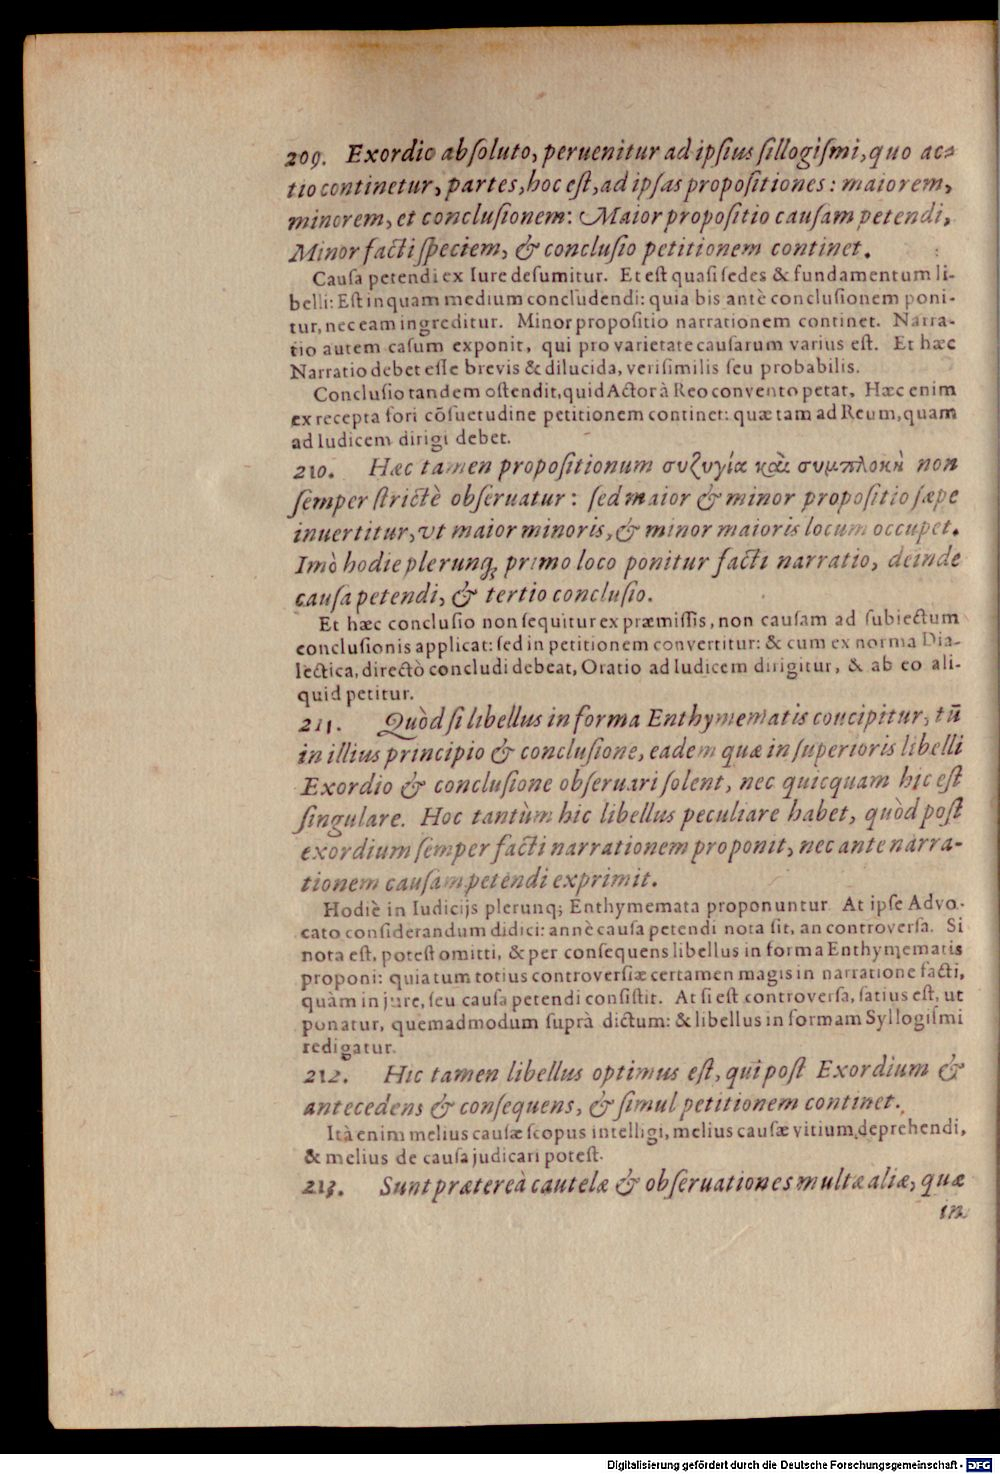 209. Exordio abſoluto, peruenitur ad ipſius ſillogiſmi, quo ac-
tio continetur, partes, hoc eſt, ad ipſas propoſitiones: maiorem,
minorem, et concluſionem: Maior propoſitio cauſam petendi,
Minor facti ſpeciem, & concluſio petitionem continet.
Cauſa petendi ex Iure deſumitur. Et eſt quaſi ſedes & fundamentum li-
belli: Eſt inquam medium concludendi: quia bis antè concluſionem poni-
tur, nec eam ingreditur. Minor propoſitio narrationem continet. Narra-
tio autem caſum exponit, qui pro varietate cauſarum varius eſt. Et hæc
Narratio debet eſſe brevis & dilucida, veriſimilis ſeu probabilis.
Concluſio tandem oſtendit, quid Actor à Reo convento petat. Hæc enim
ex recepta fori cõſuetudine petitionem continet: quæ tam ad Reum, quam
ad Iudicem dirigi debet.
210. Hæc tamen propoſitionum συζυγία καὶ συμπλοκὴ non
ſemper ſtrictè obſeruatur: ſed maior & minor propoſitio ſæpe
inuertitur, vt maior minoris, & minor maioris locum occupet.
Imò hodie plerunq; primo loco ponitur facti narratio, deinde
cauſa petendi, & tertio concluſio.
Et hæc concluſio non ſequitur ex præmiſſis, non cauſam ad ſubiectum
concluſionis applicat: ſed in petitionem convertitur: & cum ex norma Dia-
lectica, directò concludi debeat, Oratio ad Iudicem dirigitur, & ab eo ali-
quid petitur.
211. Quòd ſi libellus in forma Enthymematis coucipitur, tū
in illius principio & concluſione, eadem quæ in ſuperioris libelli
Exordio & concluſione obſeruari ſolent, nec quicquam hic eſt
ſingulare. Hoc tantùm hic libellus peculiare habet, quòd poſt
exordium ſemper facti narrationem proponit, nec ante narra-
tionem cauſam petendi exprimit.
Hodiè in Iudicijs plerunq; Enthymemata proponuntur. At ipſe Advo-
cato conſiderandum didici: annè cauſa petendi nota ſit, an controverſa. Si
nota eſt, poteſt omitti, & per conſequens libellus in forma Enthymematis
proponi: quia tum totius controverſiæ certamen magis in narratione facti,
quàm in jure, ſeu cauſa petendi conſiſtit. At ſi eſt controverſa, ſatius eſt, ut
ponatur, quemadmodum ſuprà dictum: & libellus in formam Syllogiſmi
redigatur.
212. Hic tamen libellus optimus eſt, qui poſt Exordium &
antecedens & conſequens, & ſimul petitionem continet.
Ità enim melius cauſæ ſcopus intelligi, melius cauſæ vitium deprehendi,
& melius de cauſa judicari poteſt.
213. Sunt prætereà cautelæ & obſeruationes multæ aliæ, quæ
in
Digitalisierung gefördert durch die Deutsche Forschungsgemeinschaft - DFG